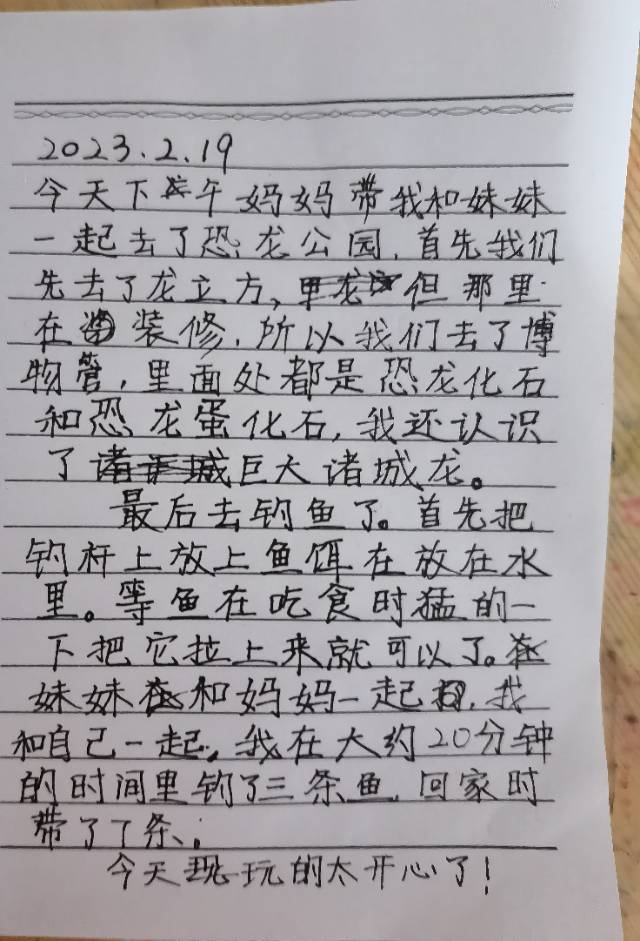 2023.2.19
今天下午妈妈带我和妹妹
一起去了恐龙公园,首先我们
先去了龙立方,但那里
在装修,所以我们去了博
物管,里面处都是恐龙化石
和恐龙蛋化石,我还认识
了巨大诸城龙。
最后去钓鱼了。首先把
钓杆上放上鱼饵在放在水
里。等鱼在吃食时猛的一
下把它拉上来就可以了。
妹妹和妈妈一起,我
和自己一起,我在大约20分钟
的时间里钓了三条鱼,回家时
带了7条。
今天玩的太开心了!